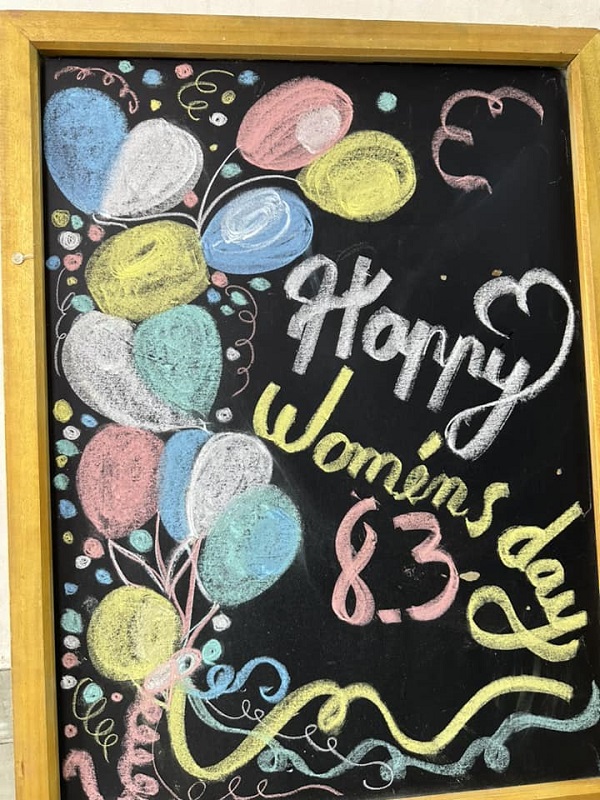 Happy
Women's day
8.3